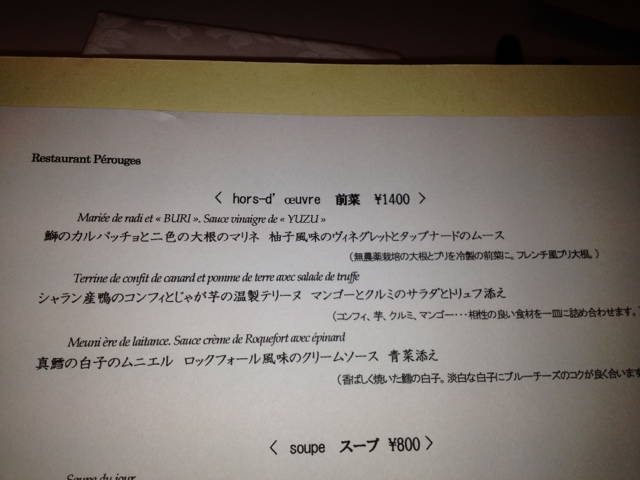 Restaurant Pérouges
< hors-d' œuvre 前菜 ¥1400 >
Mariée de radi et « BURI ». Sauce vinaigre de « YUZU »
鰤のカルパッチョと二色の大根のマリネ 柚子風味のヴィネグレットとタップナードのムース
(無農薬栽培の大根とブリを冷製の前菜に。フレンチ風ブリ大根。)
Terrine de confit de canard et pomme de terre avec salade de truffe
シャラン産鴨のコンフィとじゃが芋の温製テリーヌ マンゴーとクルミのサラダとトリュフ添え
(コンフィ、芋、クルミ、マンゴー・・・相性の良い食材を一皿に詰め合わせます。)
Meuni ère de laitance. Sauce crème de Roquefort avec épinard
真鱈の白子のムニエル ロックフォール風味のクリームソース 青菜添え
(香ばしく焼いた鱈の白子。淡白な白子にブルーチーズのコクが良く合います
< soupe スープ ¥800 >
Soupe du jour